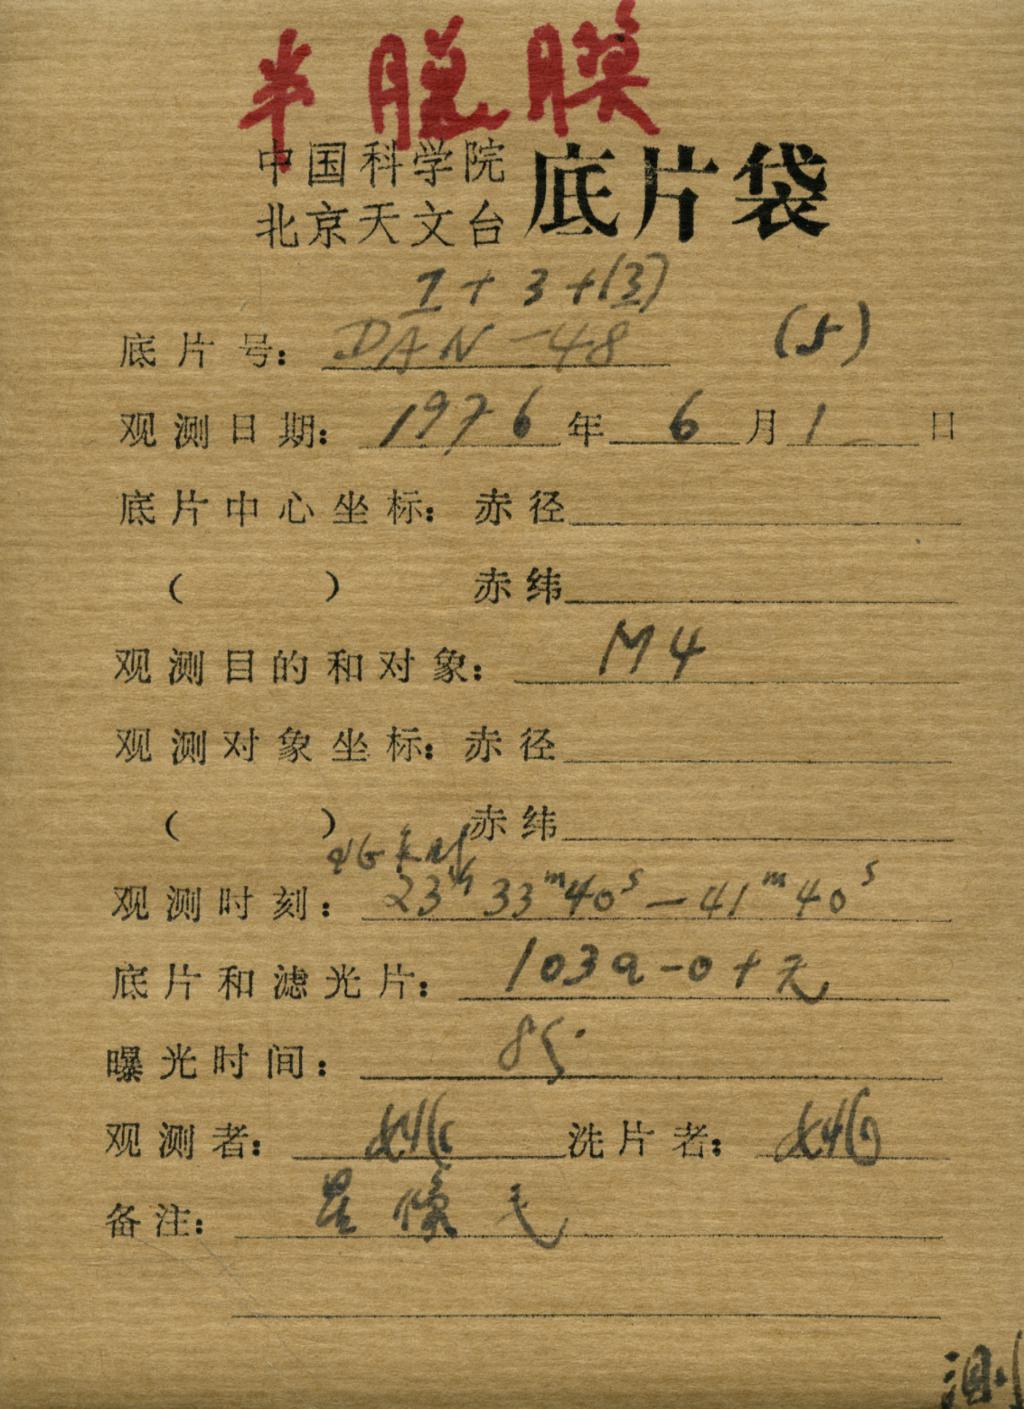 半脱膜
中国科学院
北京天文台 底片袋
1+3+(3)
底片号: DAN-48 (5)
观测日期: 1976年6月1日
底片中心坐标: 赤径
( ) 赤纬
观测目的和对象: M4
观测对象坐标: 赤径
( ) 赤纬
观测时刻: 23h33m40s-41m40s
底片和滤光片: 103a-0+无
曝光时间: 8
观测者: 洗片者:
备注: 星像毛
测